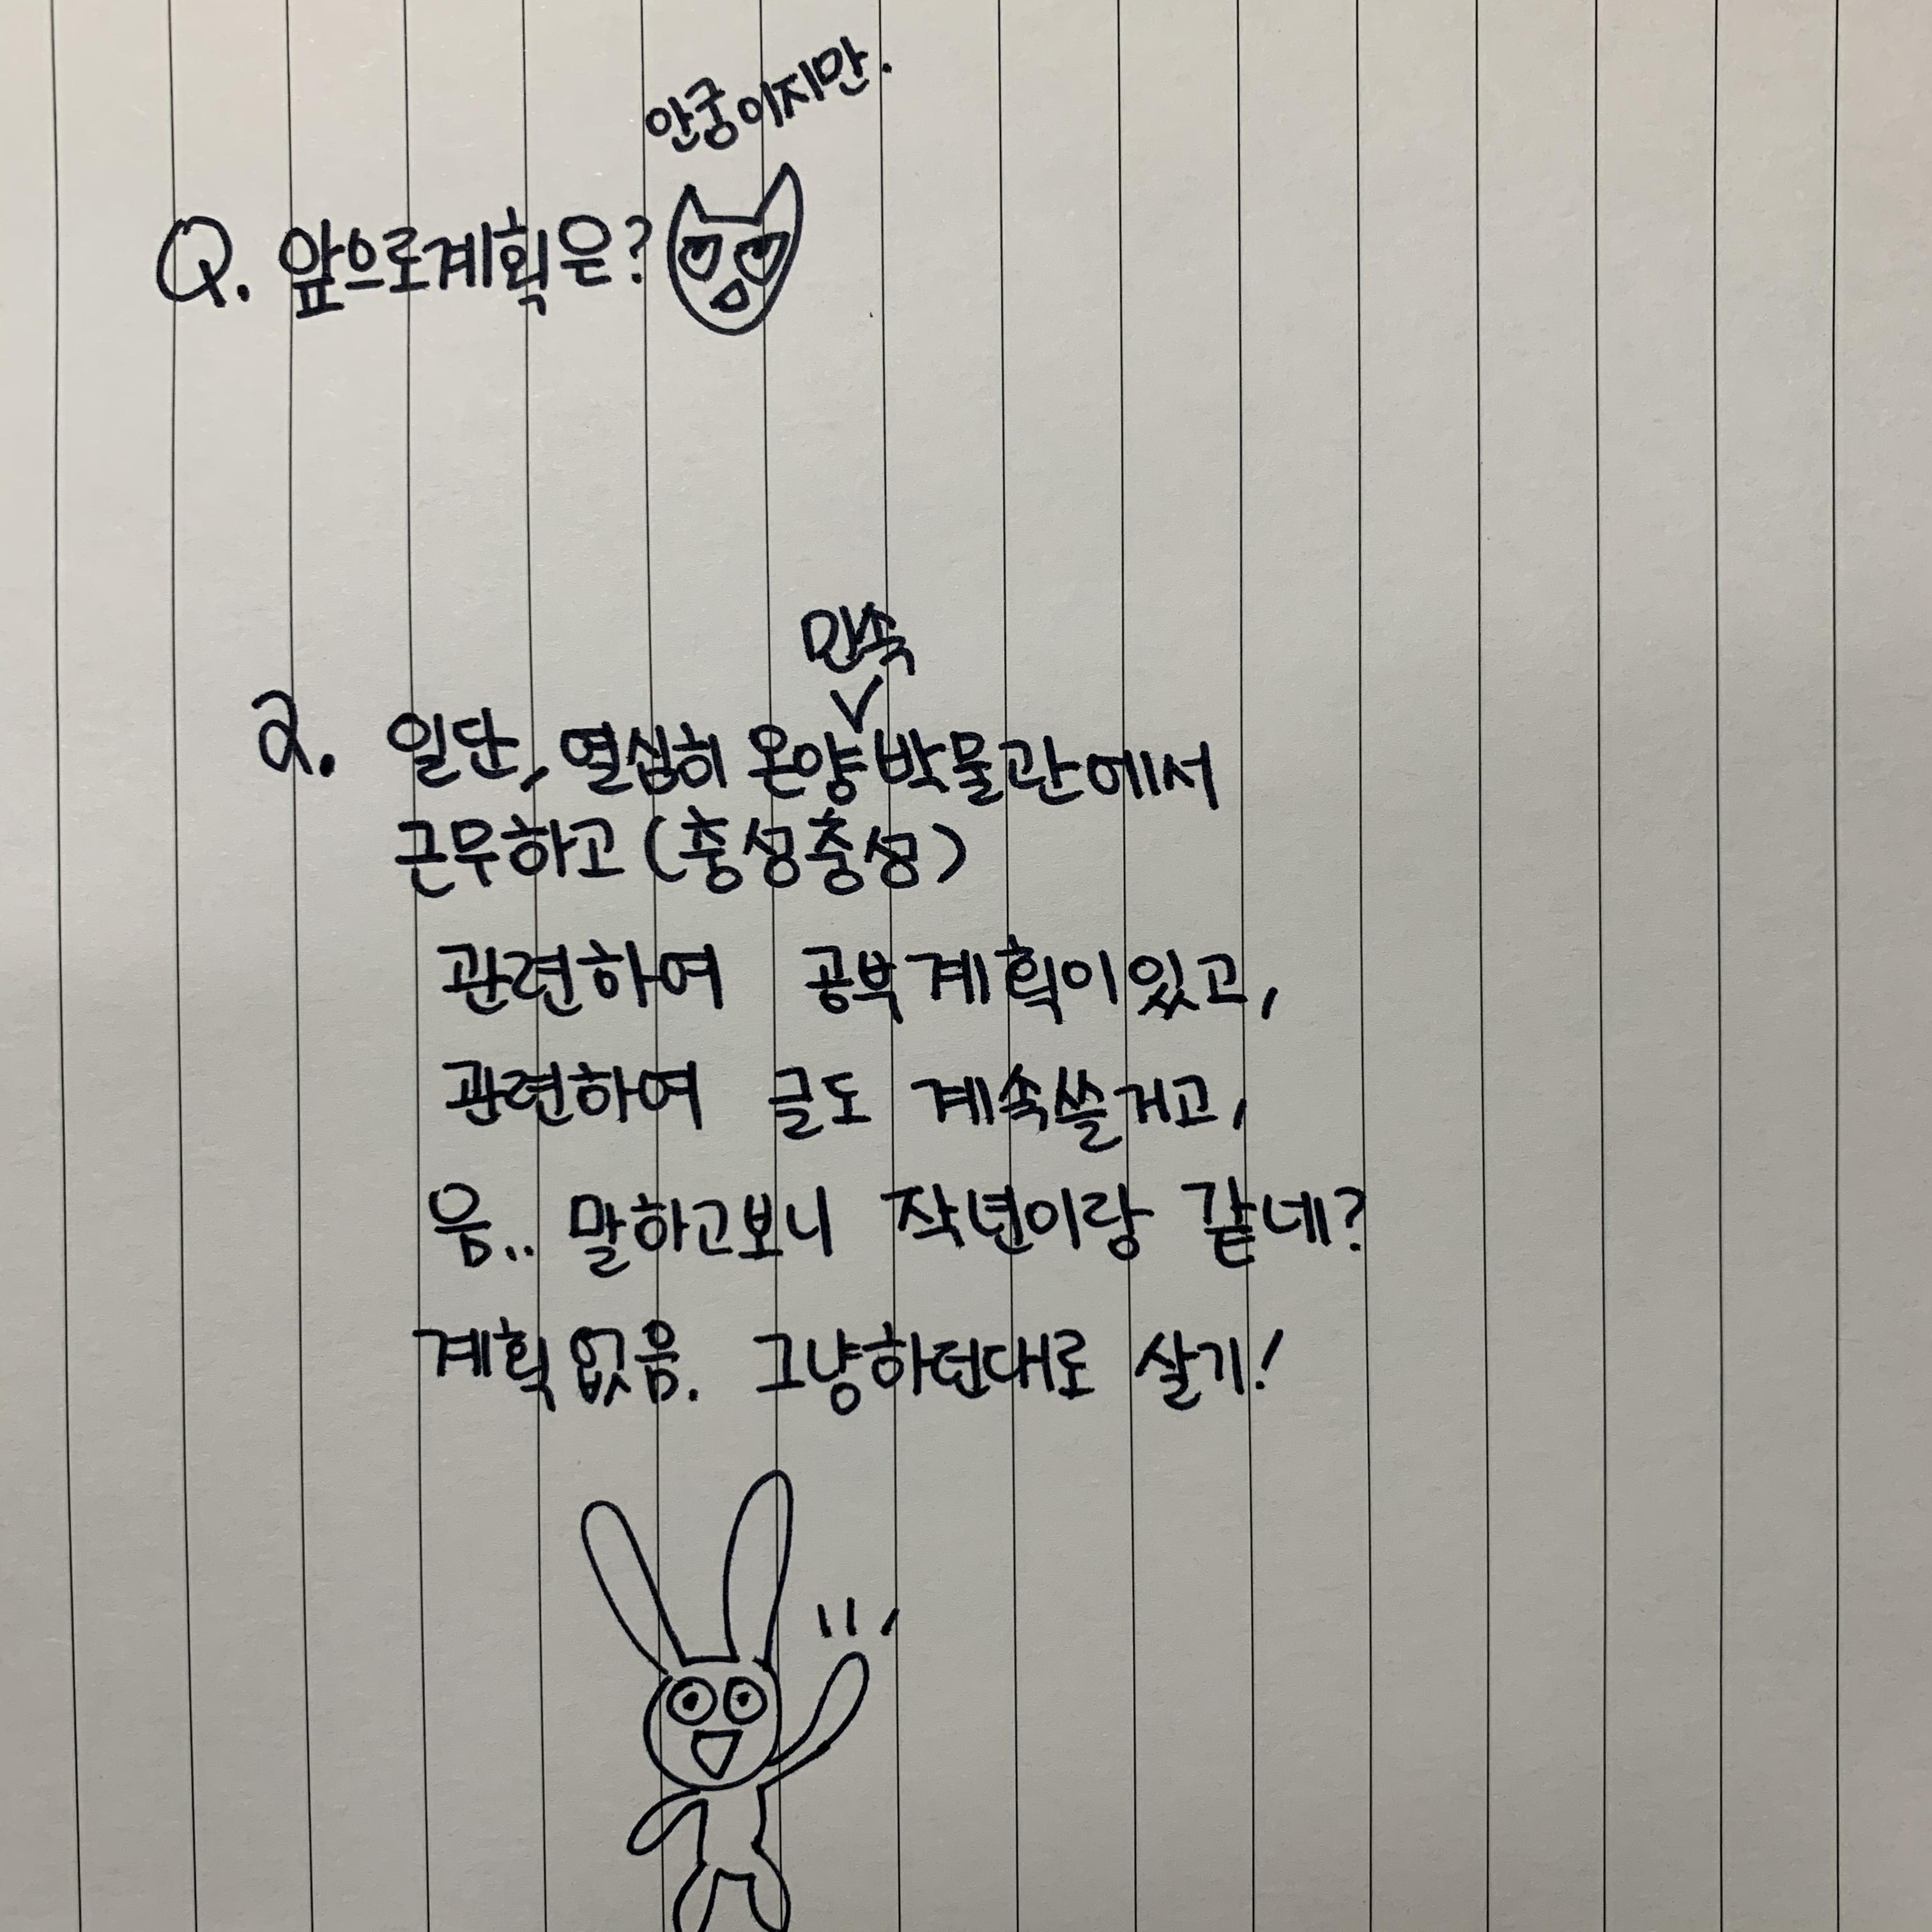 안궁이지만.
Q. 앞으로계획은?
민속
a. 일단, 열심히 온양∨박물관에서
근무하고 (충성충성)
관련하여 공부계획이있고,
관련하여 글도 계속쓸거고,
음.. 말하고보니 작년이랑 같네?
계획없음. 그냥하던대로 살기!